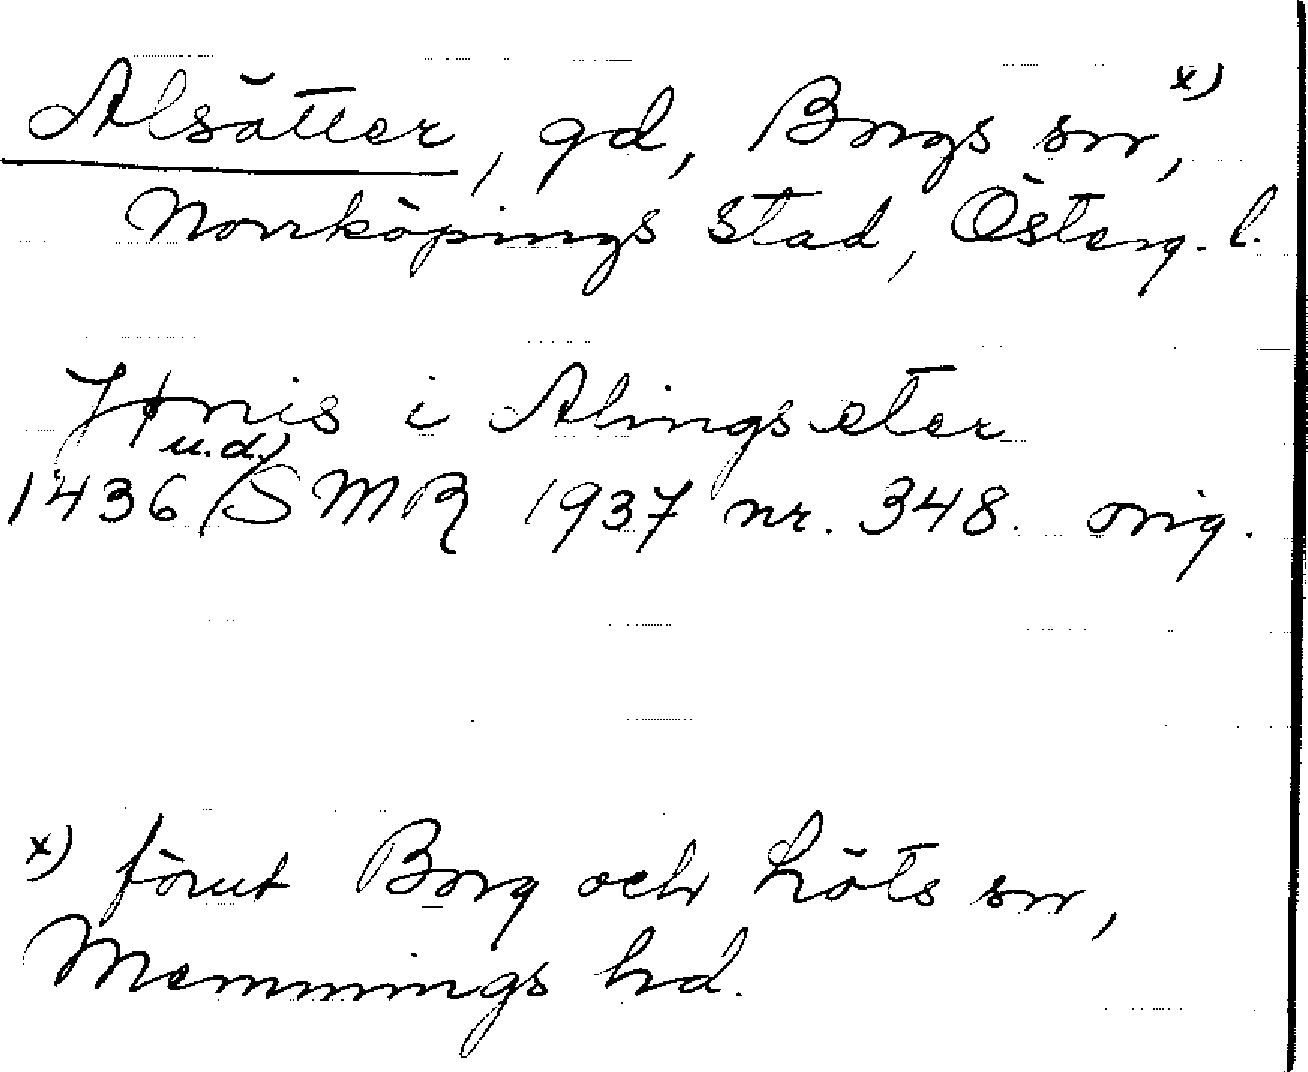 Alsätter, gd, Borgs sn, x)
Norrköpings stad, Österg. l.
Jönis i Alingseter
u.d.)
1436 / SMR 1937 nr. 348. orig.
x) förut Borg och Löts sn,
Memmings hd.